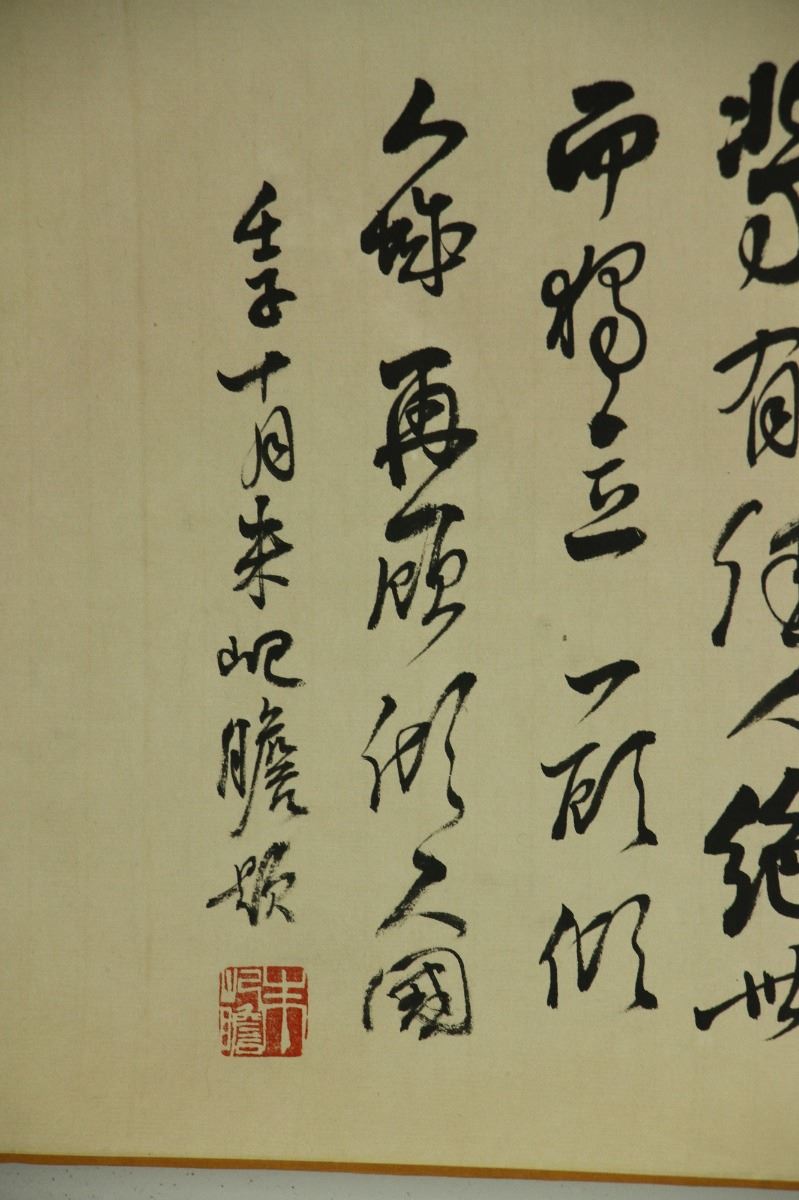 北方有佳人絶世
而獨立一顧傾
人城再顧傾人國
壬子十月朱屺瞻題
朱屺瞻